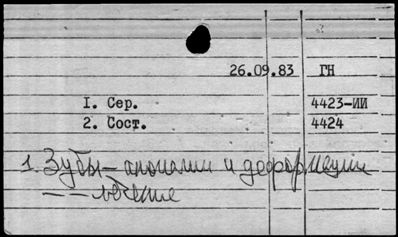 26.09.83 ГН
I. Сер. 4423-ИИ
2. Сост. 4424
1. Зубы - аномалии и деформации
— — лечение